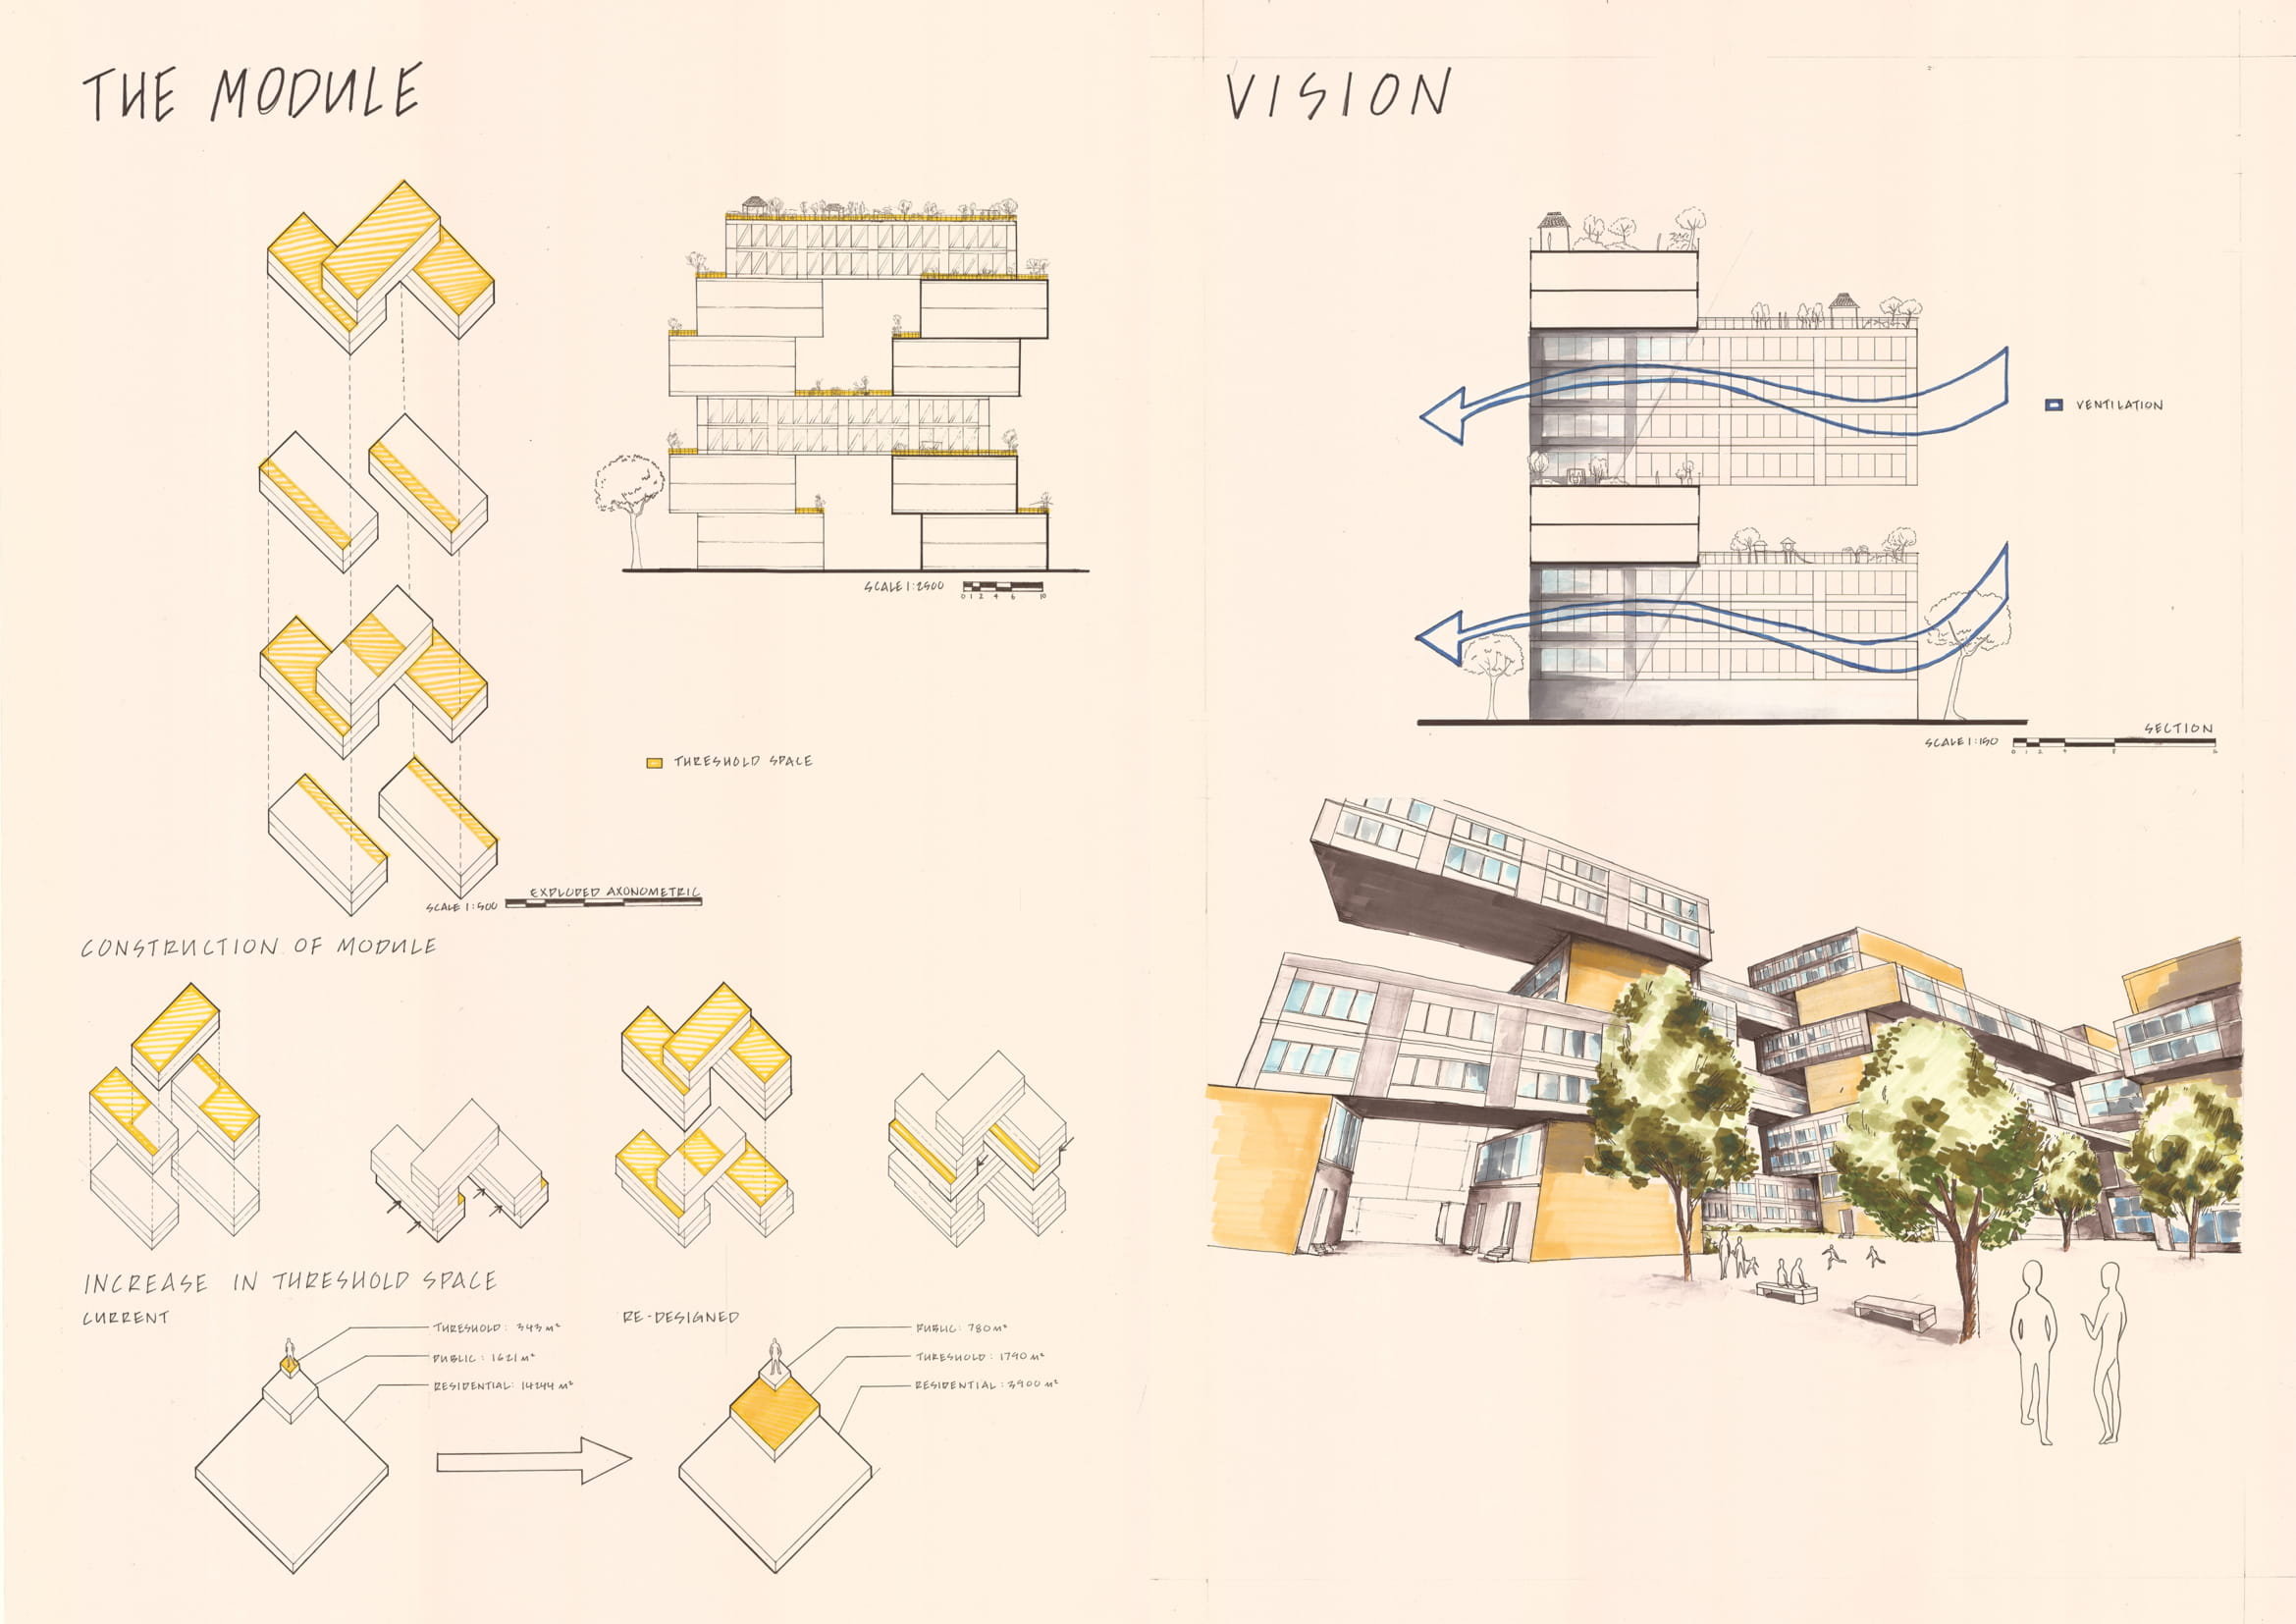 THE MODULE
SCALE 1:2500
0 1 2 4 6 10
THRESHOLD SPACE
EXPLODED AXONOMETRIC
SCALE 1:500
CONSTRUCTION OF MODULE
INCREASE IN THRESHOLD SPACE
CURRENT
THRESHOLD: 343 m²
PUBLIC: 1621 m²
RESIDENTIAL: 14244 m²
RE-DESIGNED
PUBLIC: 780 m²
THRESHOLD: 1790 m²
RESIDENTIAL: 3900 m²
VISION
VENTILATION
SECTION
SCALE 1:150